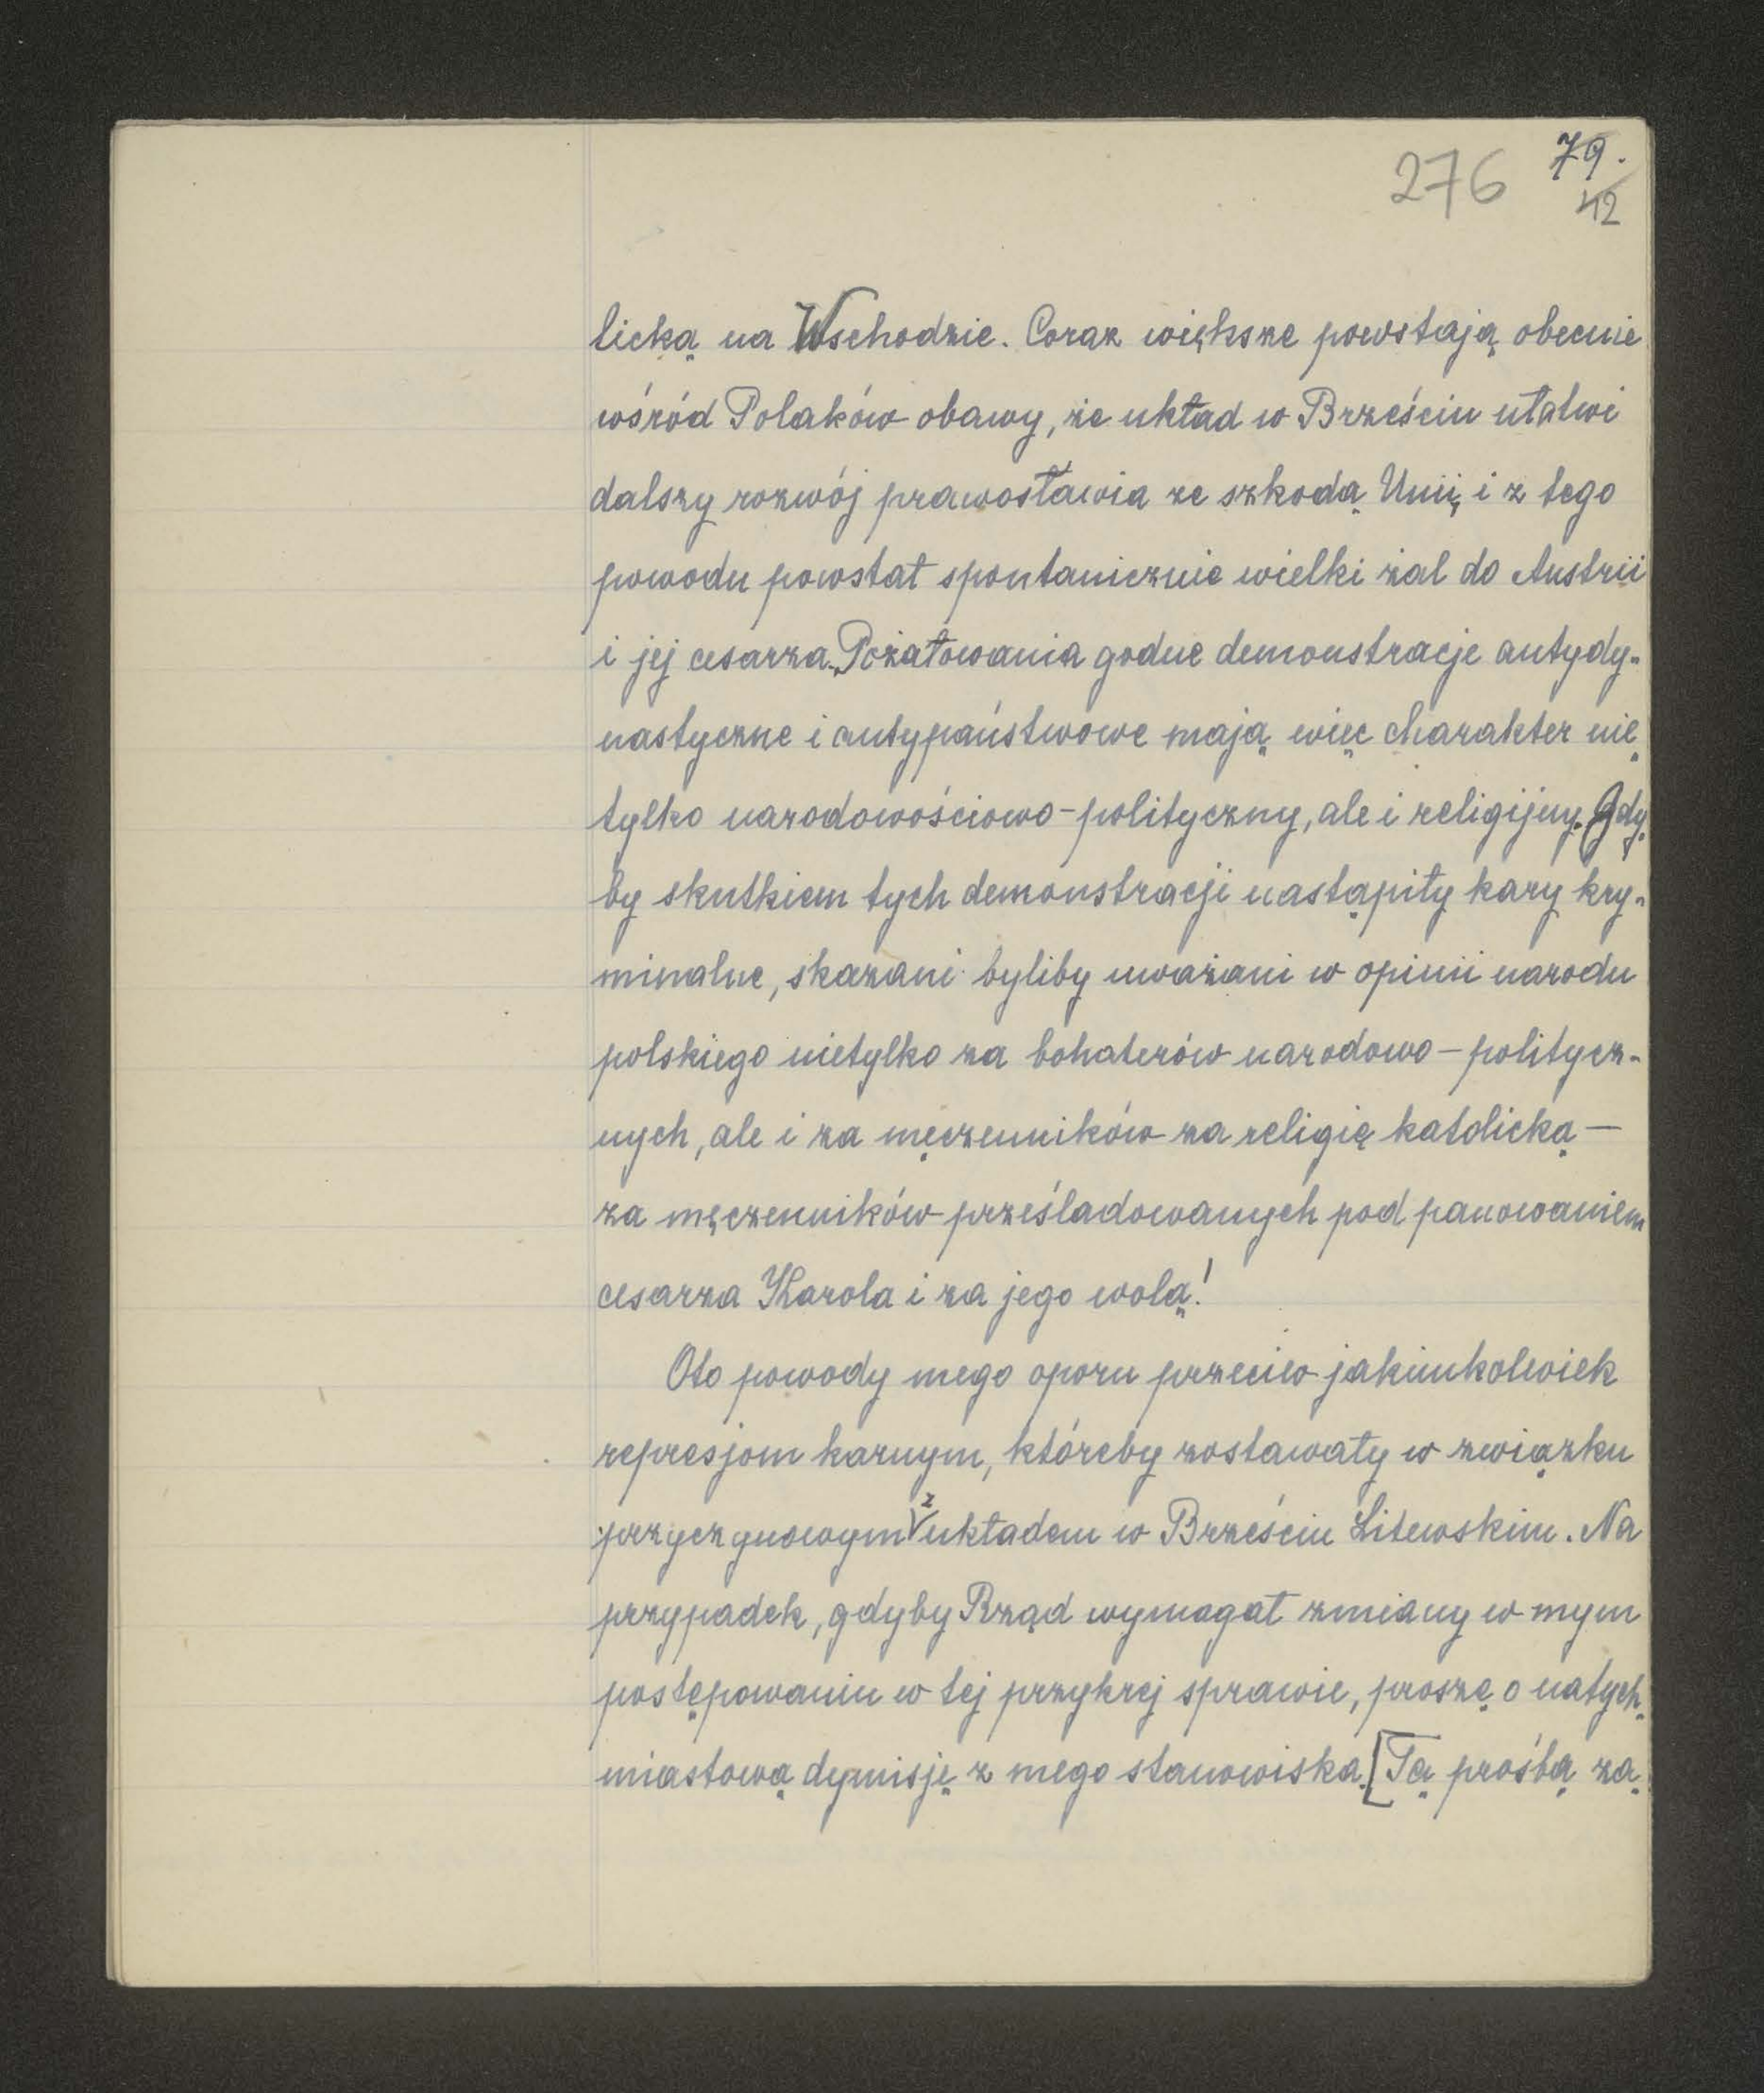 276 79.
42
licką na Wschodzie. Coraz większe powstają obecnie
wśród Polaków obawy, że układ w Brześciu ułatwi
dalszy rozwój prawosławia ze szkodą Unii, i z tego
powodu powstał spontanicznie wielki żal do Austrii
i jej cesarza. Pożałowania godne demonstracje antydy-
nastyczne i antypaństwowe mają więc charakter nie
tylko narodowościowo-polityczny, ale i religijny. Gdy-
by skutkiem tych demonstracji nastąpiły kary kry-
minalne, skazani byliby uważani w opinii narodu
polskiego nietylko za bohaterów narodowo-politycz-
nych, ale i za męczenników za religię katolicką —
za męczenników prześladowanych pod panowaniem
cesarza Karola i za jego wolą!
Oto powody mego oporu przeciw jakimkolwiek
represjom karnym, któreby zostawały w związku
przyczynowym z układem w Brześciu Litewskim. Na
przypadek, gdyby Rząd wymagał zmiany w mym
postępowaniu w tej przykrej sprawie, proszę o natych-
miastową dymisję z mego stanowiska. [Tą prośbą za-